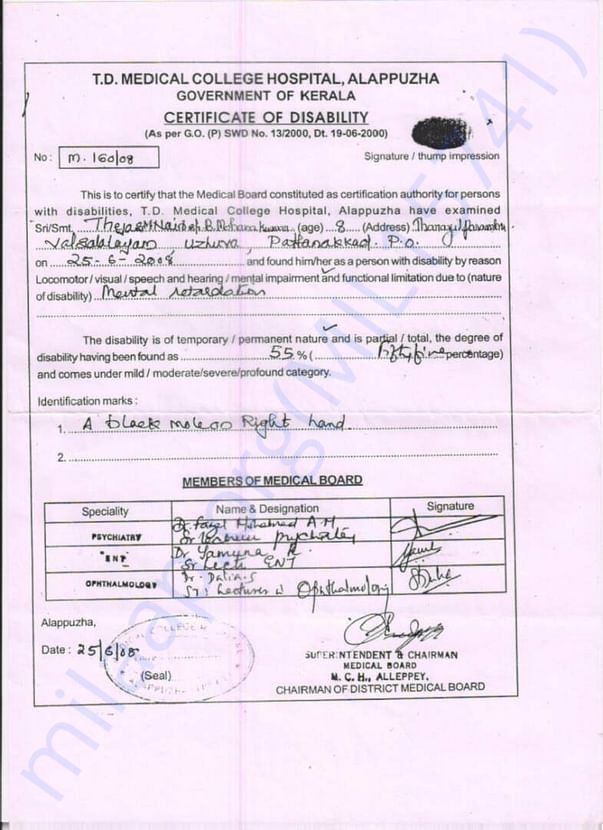 T.D. MEDICAL COLLEGE HOSPITAL, ALAPPUZHA
GOVERNMENT OF KERALA
CERTIFICATE OF DISABILITY
(As per G.O. (P) SWD No. 13/2000, Dt. 19-06-2000)
No : M. 160/08
Signature / thump impression
This is to certify that the Medical Board constituted as certification authority for persons
with disabilities, T.D. Medical College Hospital, Alappuzha have examined
Sri/Smt. B. Mohana (age) 8 (Address)
Valsalalayam, Uzhuva, Pattanakkad P.O.
on 25-6-2008 and found him/her as a person with disability by reason
Locomotor / visual / speech and hearing / mental impairment and functional limitation due to (nature
of disability) Mental retardation
The disability is of temporary / permanent nature and is partial / total, the degree of
disability having been found as 55 % ( fifty five percentage)
and comes under mild / moderate/severe/profound category.
Identification marks :
1. A black mole on Right hand.
2.
MEMBERS OF MEDICAL BOARD
Speciality Name & Designation Signature
PSYCHIATRY Dr. Mohamed A.M
Sr
"ENT" Dr Yamuna R.
Sr Lect ENT
OPHTHALMOLOGY Dr. Dalia.S
Sr. Lecturer in Ophthalmology
Alappuzha,
Date : 25/6/08
(Seal)
SUPERINTENDENT & CHAIRMAN
MEDICAL BOARD
M. C. H., ALLEPPEY.
CHAIRMAN OF DISTRICT MEDICAL BOARD